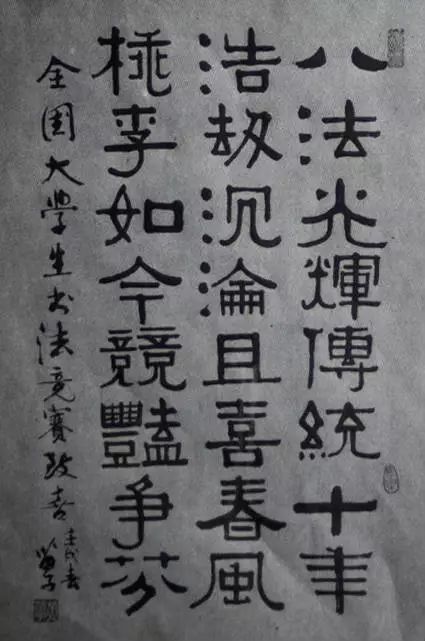 八法光輝傳統十年
浩劫沉淪且喜春風
桃李如今競豔爭芬
全国大學生书法竞赛致喜
壬戌春